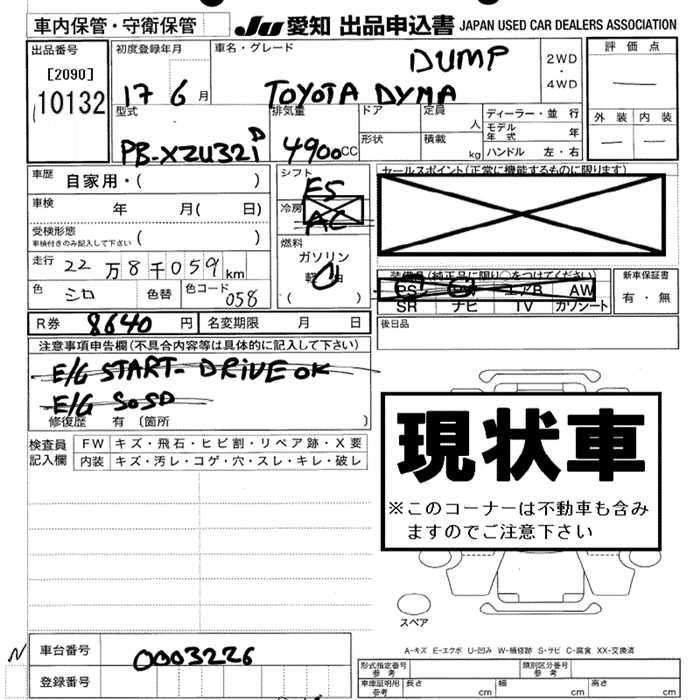 車内保管・守衛保管
JU 愛知 出品申込書 JAPAN USED CAR DEALERS ASSOCIATION
出品番号 初度登録年月 車名・グレード 評価点
[2090] DUMP 2WD・4WD
10132 17 6月 TOYOTA DYNA 外装 内装
型式 排気量 ドア 定員 人 ディーラー・並行
形状 積載 kg モデル年式 年
PB-XZU321D 4900CC ハンドル 左・右
車歴 自家用・( ) シフト F5 セールスポイント(正常に機能するものに限ります)
車検 年 月( 日) 冷房 AC
受検形態 車検付きのみ記入して下さい ( ) 燃料
ガソリン
走行 22万8千059km 軽油 装備品(純正品に限り○をつけてください) 新車保証書
色 シロ 色替 色コード 058 ( ) PS PW エアB AW 有・無
SR ナビ TV カワシート
R券 8640円 名変期限 月 日 後日品
注意事項申告欄(不具合内容等は具体的に記入して下さい)
E/G START- DRIVE OK
E/G SOSD
修復歴 有 〔箇所 〕
検査員記入欄 FW キズ・飛石・ヒビ割・リペア跡・X要
内装 キズ・汚レ・コゲ・穴・スレ・キレ・破レ
現状車
※このコーナーは不動車も含み
ますのでご注意下さい
スペア
A-キズ E-エクボ U-凹み W-補修跡 S-サビ C-腐食 XX-交換済
N 車台番号 0003226
登録番号
形式指定番号 参考 類別区分番号 参考
車庫証明用 参考 長さ cm 幅 cm 高さ cm